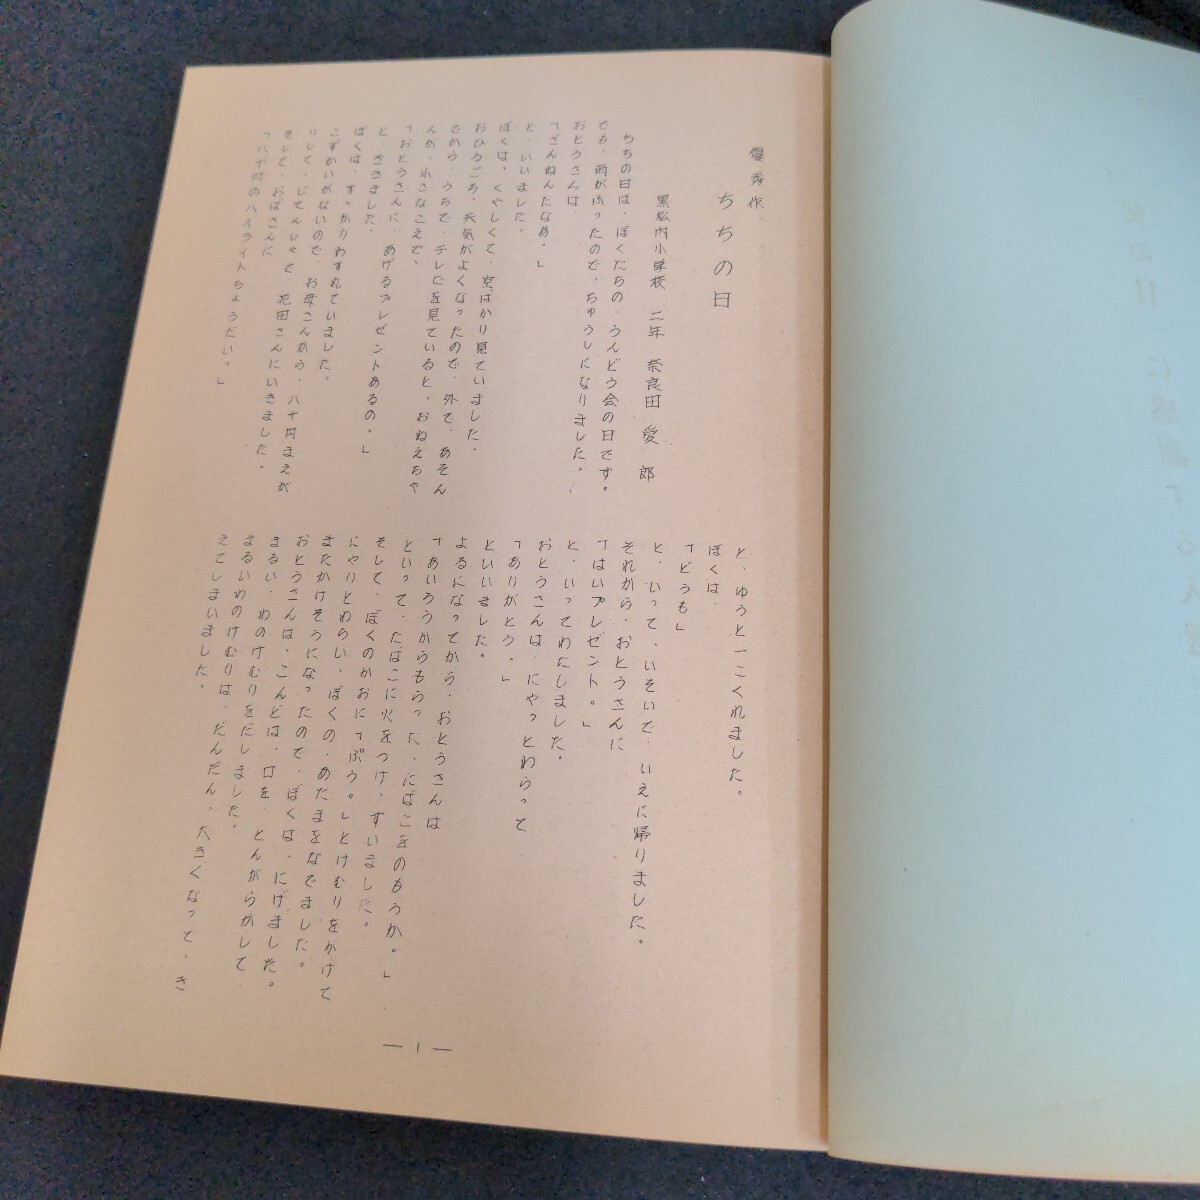 優秀作
ちちの日
黒松内小学校 二年 奈良田 愛郎
ちちの日は、ぼくたちの、うんどう会の日です。
でも、雨がふったので、ちゅうしになりました。
おとうさんは、
「ざんねんだなあ。」
と、いいました。
ぼくは、くやしくて、空ばかり見ていました。
おひるごろ、天気がよくなったので、外で、あそん
でから、うちで、テレビを見ていると、おねえちゃ
んが、小さなこえで、
「おとうさんに、あげるプレゼントあるの。」
と、ききました。
ぼくは、すっかりわすれていました。
こずかいがないので、お母さんから、八十円まえが
りして、じてんしゃで、花田さんにいきました。
そして、おばさんに
「八十円のハイライトちょうだい。」
と、ゆうと一こくれました。
ぼくは、
「どうも」
と、いって、いそいで、いえに帰りました。
それから、おとうさんに
「はいプレゼント。」
と、いってわたしました。
おとうさんは、にやっとわらって
「ありがとう。」
といいました。
よるになってから、おとうさんは
「あいろうからもらった、たばこをのもうか。」
といって、たばこに火をつけ、すいました。
そして、ぼくのかおに「ぷう。」とけむりをかけて
にやりとわらい、ぼくの、あたまをなでました。
またかけそうになったので、ぼくは、にげました。
おとうさんは、こんどは、口を、とんがらかして、
まるい、わのけむりをだしました。
まるいわのけむりは、だんだん、大きくなって、き
えてしまいました。
— 1 —